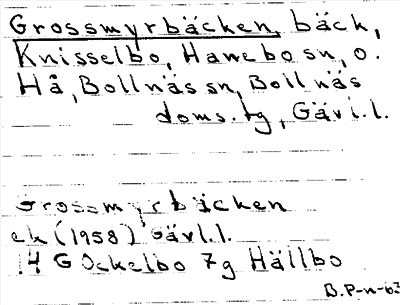 Grossmyrbäcken, bäck,
Knisselbo, Hanebo sn, o.
Hå, Bollnäs sn, Bollnäs
doms.tg, Gävl.l.
Grossmyrbäcken
ek (1958) Gävl.l.
14 G Ockelbo 7g Hällbo
B.P-n-63